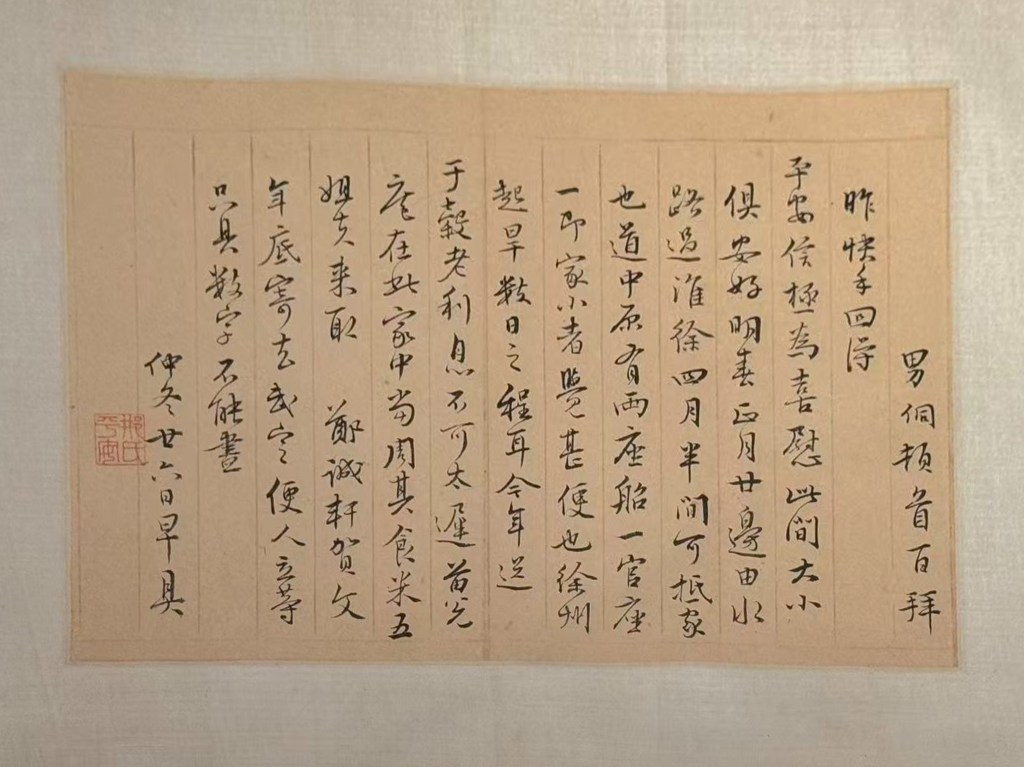 男侗頓首百拜
昨快手回得
平安信極為喜慰此間大小
俱安好明春正月廿邊由水
路過淮徐四月半間可抵家
也道中原有兩座船一官座
一即家小者覺甚便也徐州
起旱數日之程耳今年送
于穀老利息不可太遲苗兄
在此家中當周其食米五
姐夫來取 鄭誠軒賀文
年底寄去或亦便人立等
只具數字不能盡
仲冬廿六日早具
邢氏